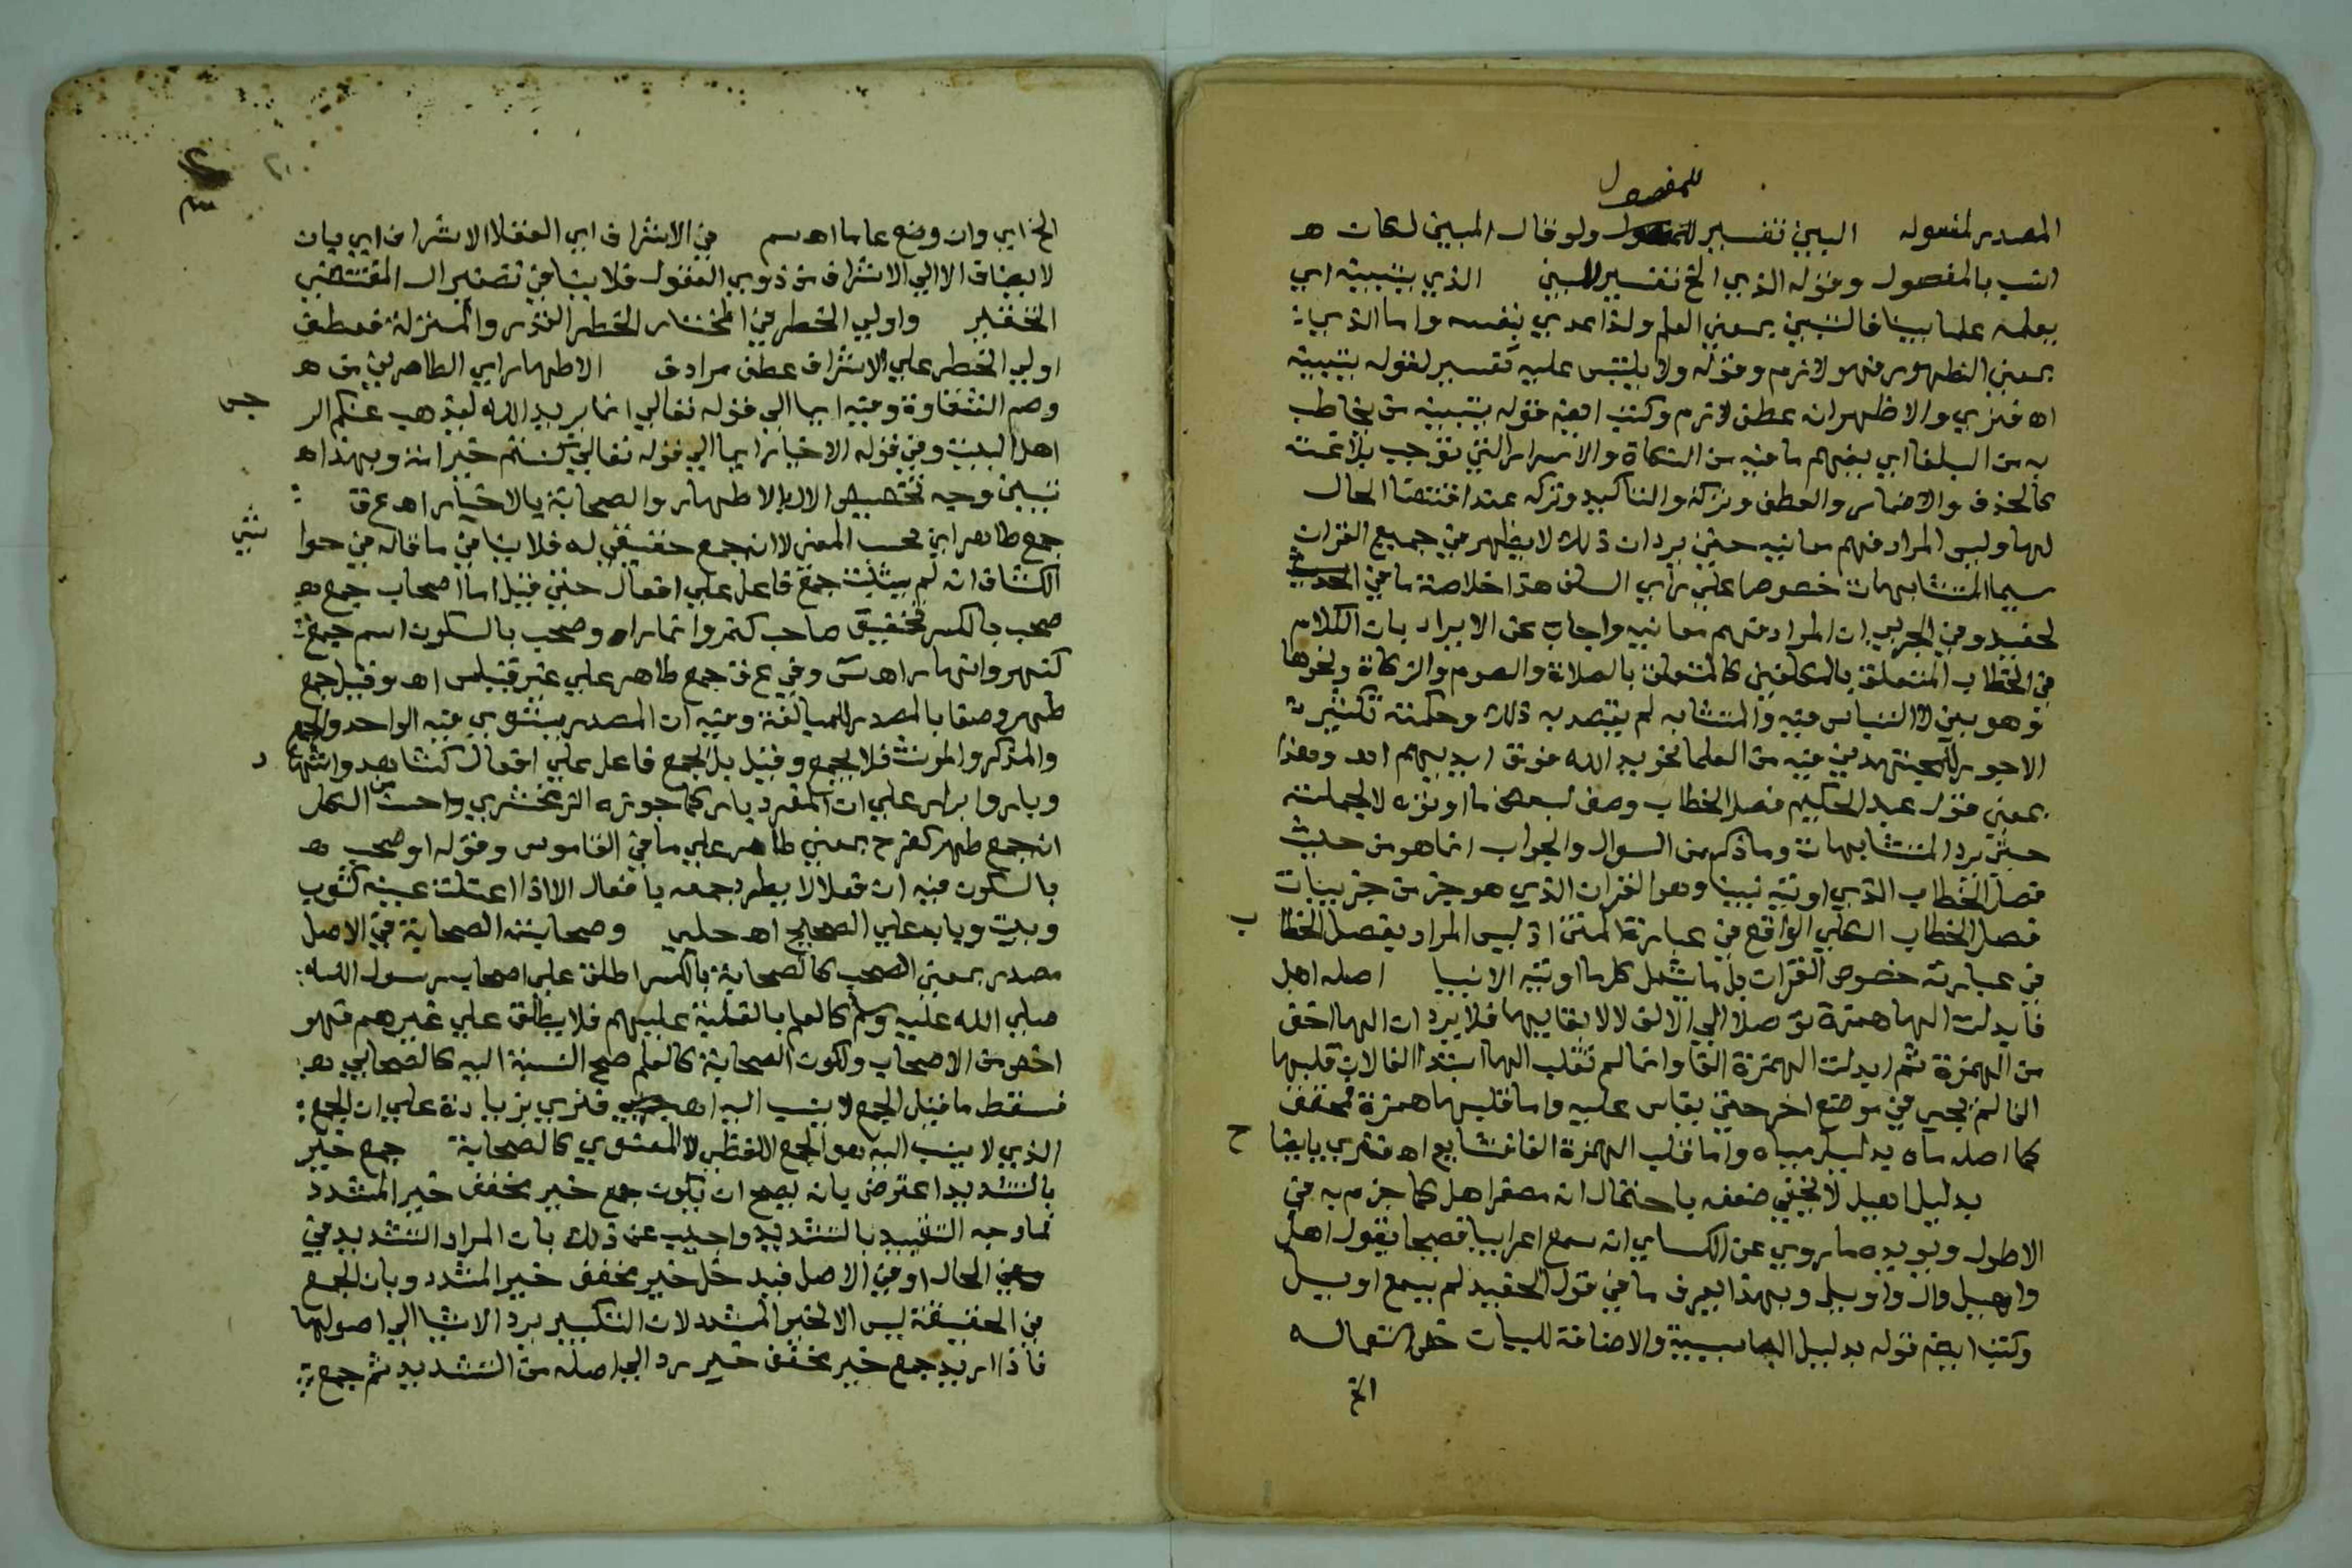 للمفصول
المصدر لمفعوله البين تفسير للمفصول ولو قال المبين لكان ه
انسب بالمفصول وقوله الذي الخ تفسير للبين الذي يتبينه اي
يعلمه علما بينا فالتبين بمعنى العلم ولذا عدي بنفسه واما الذي
بمعنى الظهور فهو لازم وقوله ولا يلتبس عليه تفسير لقوله يتبينه
اه فنري والاظهر انه عطف لازم وكتب ايضا قوله يتبينه من يخاطب
به من البلغا اي يفهم ما فيه من النكاة والاسرار التي توجب بلاغته
كالحذف والاضمار والعطف وتركه والتاكيد وتركه عند اقتضا الحال
لها وليس المراد فهم معانيه حتى يرد ان ذلك لا يظهر في جميع القران
سيما المتشابهات خصوصا على راي السلف هذا خلاصة ما في
لحفيد وفي الجربي ان المراد فهم معانيه واجاب عن الايراد بان الكلام
في الخطاب المتعلق بالمكلفين كالمتعلق بالصلاة والصوم والزكاة ونحوها
وهو بين لا التباس فيه والمتشابه لم يقصد به ذلك وحكمته تكثير
الاجور للمجتهدين فيه من العلما نحو يد الله فوق ايديهم اه وهذا
بمعنى قول عبد الحكيم فصل الخطاب وصف لبعض ما اوتوه لا لجملته
حتى يرد المتشابهات وما ذكر من السوال والجواب انما هو من حيث
فصل الخطاب الذي اوتيه نبينا وهو القران الذي هو جز من جزييات
فصل الخطاب الكلي الواقع في عبارة المتن اذ ليس المراد بفصل الخطا ب
في عبارته خصوص القران بل ما يشمل كل ما اوتيه الانبيا اصله اهل
فابدلت الها همزة توصلا الى الالف لا لابقاييها فلا يرد ان الها اخف
من الهمزة ثم ابدلت الهمزة الفا وانما لم تقلب الها ابتدا الفا لان قلبها
الفا لم يجي في موضع اخر حتى يقاس عليه واما قلبها همزة فمحقق
كما اصله ماه بدليل مياه واما قلب الهمزة الفا فشايع اه فنري بايضا ح
بدليل اهيل لا يخفى ضعفه باحتمال انه مصغر اهل كما جزم به في
الاطول ويويده ما روي عن الكساي انه سمع اعرابيا فصيحا يقول اهل
واهيل وال واويل وبهذا يعرف ما في قول الحفيد لم يسمع اويل
وكتب ايضا قوله بدليل البا سببية والاضافة للبيان خص استعماله
الخ
الخ اي وان وضع عاما اه سم في الاشراف اي العقلا الاشراف اي بان
لا يضاف الا الى الاشراف من ذوي العقول فلا ينافي تصغير ال المقتضي
التحقير واولي الخطر في المختار الخطر القدر والمنزلة فعطف
اولي الخطر على الاشراف عطف مرادف الاطهار اي الطاهرين من ه
وصم الشقاوة وفيه ايما الى قوله تعالى انما يريد الله ليذهب عنكم الر جس
اهل البيت وفي قوله الاخيار ايما الى قوله تعالى كنتم خير امة وبهذا ه
تبين وجه تخصيص الال بالاطهار والصحابة بالاخيار اه ع ق
جمع طاهر اي بحسب المعنى لا انه جمع حقيقي له فلا ينافي ما قاله في حوا شي
الكشاف انه لم يثبت جمع فاعل على افعال حتى قيل اما اصحاب جمع ه
صحب بالكسر تخفيف صاحب كنمر وانمار او صحب بالسكون اسم جمع
كنهر وانهار اه س وفي ع ق جمع طاهر على غير قياس اه وقيل جمع
طهر وصفا بالمصدر للمبالغة وفيه ان المصدر يستوي فيه الواحد والجمع
والمذكر والمونث فلا يجمع وقيل بل جمع فاعل على افعال كشاهد واشها د
وبار وابرار على ان المفرد بار كما جوزه الزمخشري واحسن من الكل
انه جمع طهر كفرح بمعنى طاهر على ما في القاموس وقوله او صحب ه
بالسكون فيه ان فعلا لا يطرد جمعه بافعال الا اذا اعتلت عينه كثوب
وبيت وباب على الصحيح اه حلبي وصحابته الصحابة في الاصل
مصدر بمعنى الصحب كالصحابة بالكسر اطلق على اصحاب رسول الله
صلى الله عليه وسلم كالعلم بالغلبة عليهم فلا يطلق على غيرهم فهو
اخص من الاصحاب ولكون الصحابة كالعلم صح النسبة اليه كالصحابي ه
فسقط ما قيل الجمع لا ينسب اليه اه فنري بزيادة على ان الجمع
الذي لا ينسب اليه هو الجمع اللفظي لا المعنوي كالصحابة جمع خير
بالتشديد اعترض بانه يصح ان يكون جمع خير مخفف خير المشدد
فما وجه التقييد بالتشديد واجيب عن ذلك بان المراد التشديد في
الحال او في الاصل فيدخل خير مخفف خير المشدد وبان الجمع
في الحقيقة ليس الا لخير المشدد لان التكسير يرد الاشيا الى اصولها
فاذا اريد جمع خير مخفف خير رد الى اصله من التشديد ثم جمع